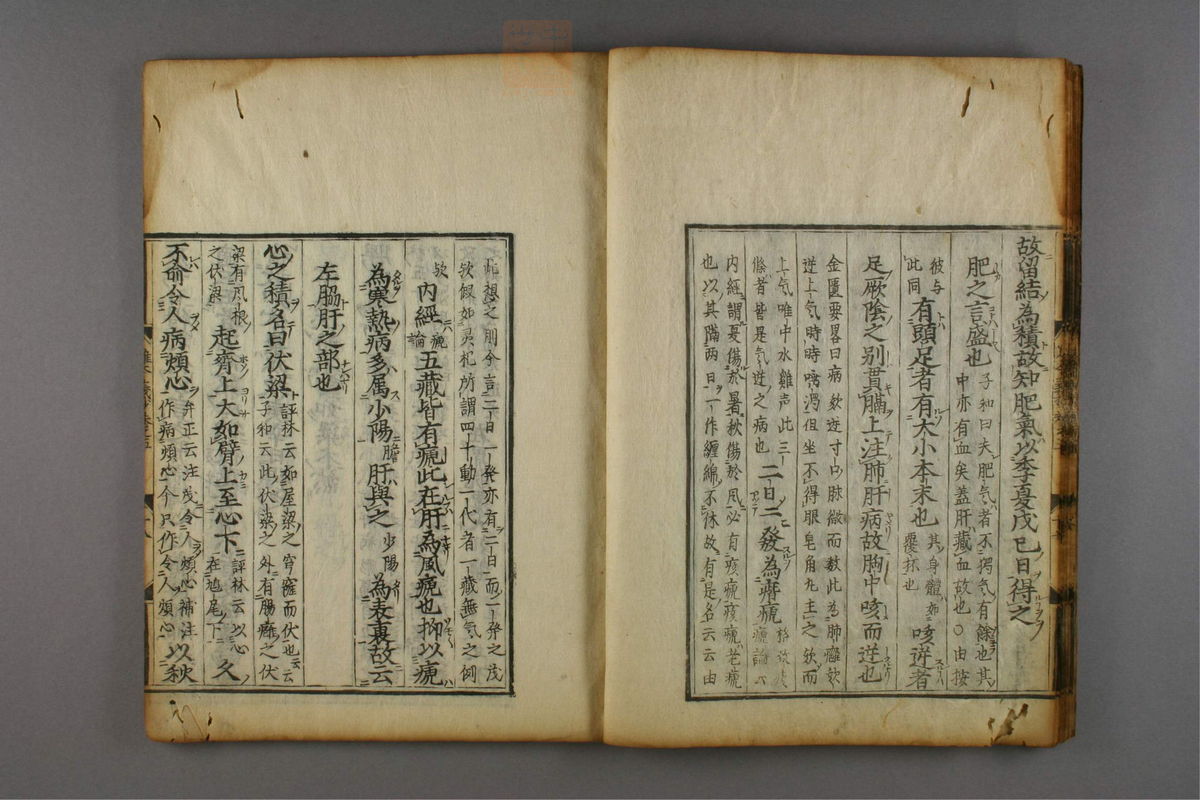 故留結為積故知肥氣以季夏戊巳日得之
肥之言盛也 子和曰夫肥气者不獨气有餘也其
中亦有血矣蓋肝藏血故也○由按
彼与此同 有頭足者有大小本末也 其身體如覆抔也 咳逆者
足厥陰之別貫膈上注肺肝病故胸中咳而逆也
金匱要畧曰病欬逆寸口脉微而数此為肺癰欬
逆上气時時唾濁但坐不得眠皂角丸主之欬而
上气喉中水雞声此三
條者皆是气逆之病也 二日一發為痎瘧 瘧論
内經謂夏傷於暑秋傷於風必有痎瘧痎瘧老瘧
也以其隔兩日一作纏綿不休故有是名云云由
想之則今言二日一発亦有二日而一発之
欬 如 所謂四十動一代者一藏無气之例
欤 内經 瘧論 五藏皆有瘧此在肝為風瘧也抑以瘧
為寒熱病多属少陽 膽 肝與之 少陽 為表裏故云
左脇肝之部也
心之積名曰伏梁 評林云如屋梁之穹窿而伏也云
子和云此伏梁之外有腸癰之伏
梁有风根
之伏梁 起齊上大如臂上至心下 評林云以心在鳩尾下 久
不愈令人病煩心 弁正云注及令人煩心補注
作病煩心今只作令人煩心 以秋